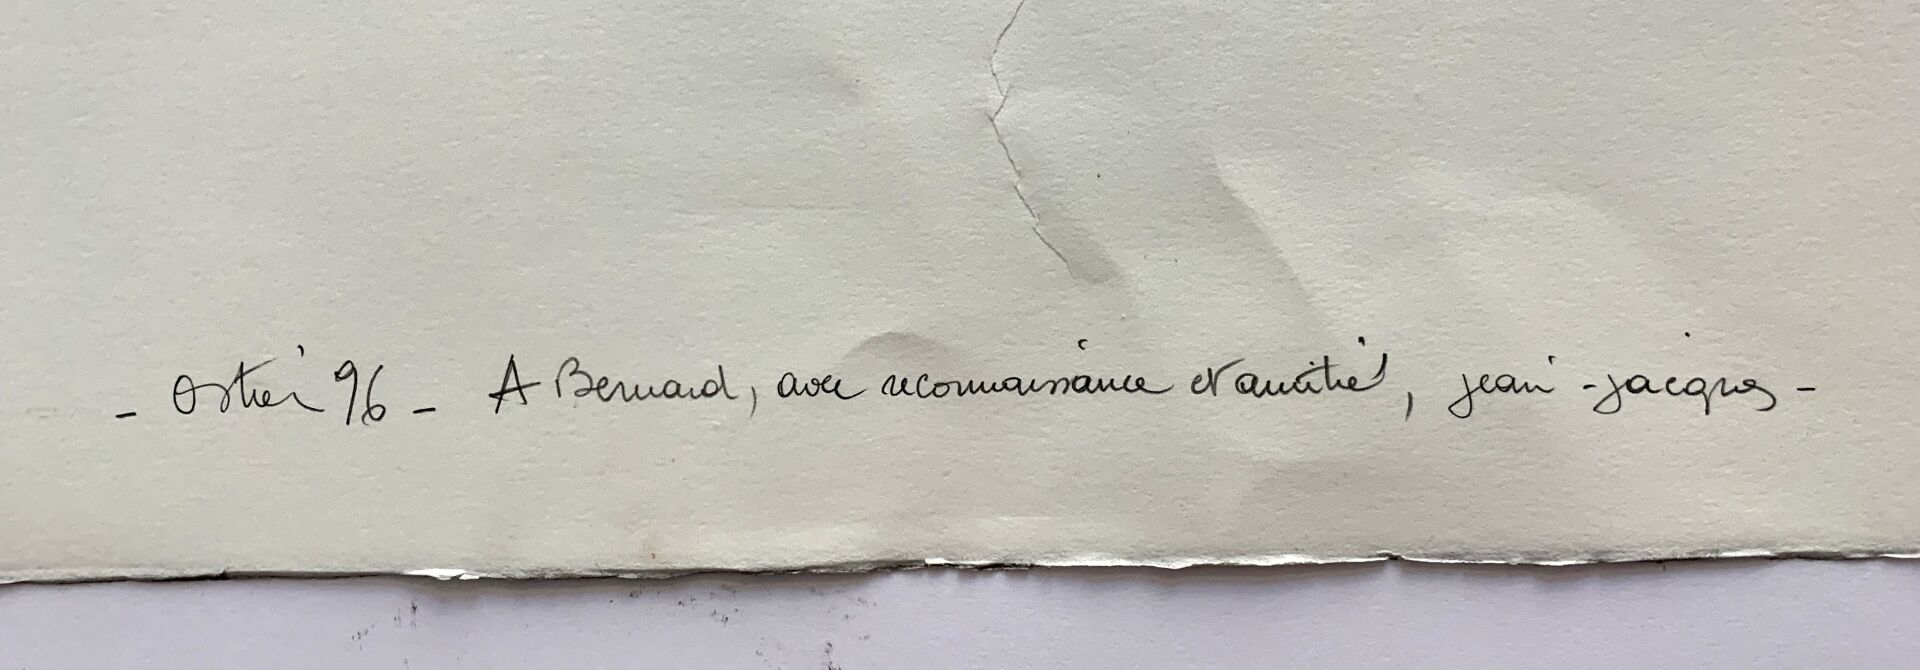 - Ostier 96 - A Bernard, avec reconnaissance et amitié, jean-jacques -